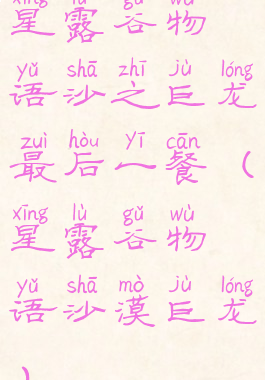 xīng lù gǔ wù
星露谷物
yǔ shā zhī jù lóng
语沙之巨龙
zuì hòu yī cān
最后一餐（
xīng lù gǔ wù
星露谷物
yǔ shā mò jù lóng
语沙漠巨龙
）